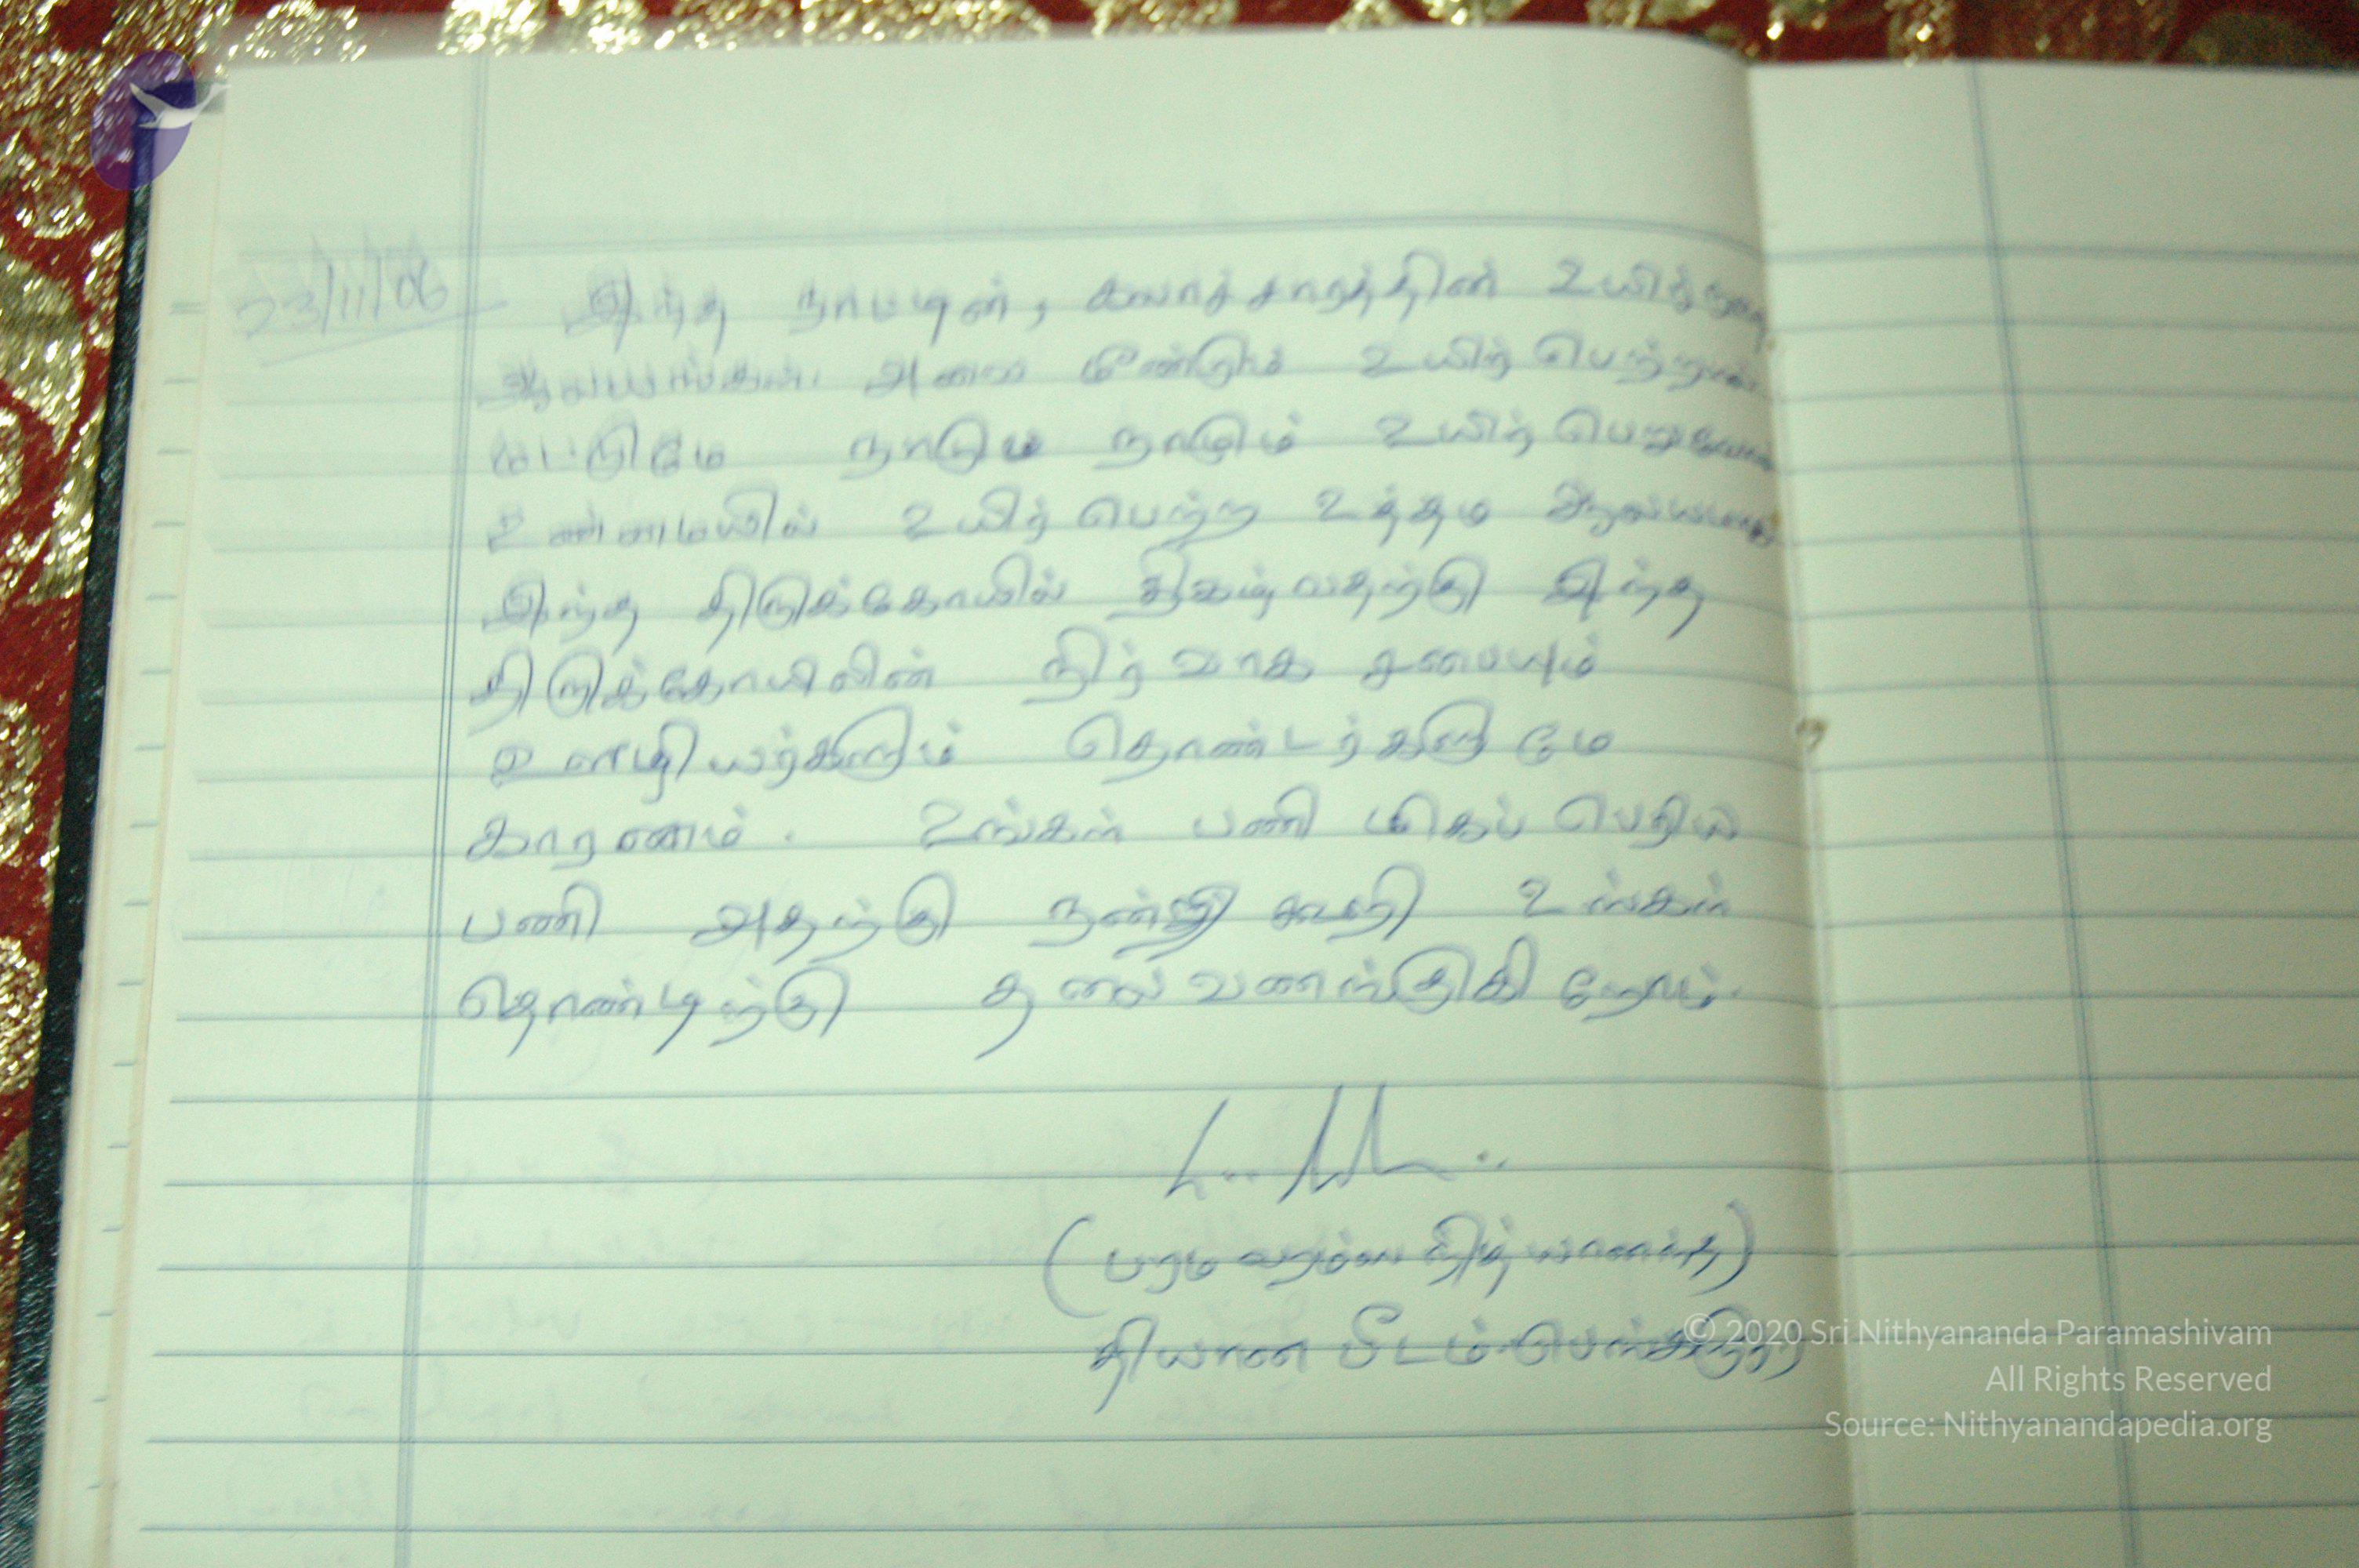 23/11/06 இந்த நாட்டின், கலாச்சாரத்தின்
ஆலயங்கள் அவை மீண்டும் உயிர் பெற்றால்
மட்டுமே நாடும் நாமும் உயிர் பெறுவோம்
உண்மையில் உயிர் பெற்ற உத்தம
இந்த திருக்கோயில் திகழ்வதற்கு இந்த
திருக்கோயிலின் நிர்வாக சபையும்
ஊழியர்களும் தொண்டர்களுமே
காரணம். உங்கள் பணி மிகப் பெரிய
பணி அதற்கு நன்றி கூறி உங்கள்
தொண்டிற்கு தலைவணங்குகிறோம்.
(பரமஹம்ஸ நித்யானந்த)
தியான பீடம் பெங்களூர்
© 2020 Sri Nithyananda Paramashivam
All Rights Reserved
Source: Nithyanandapedia.org